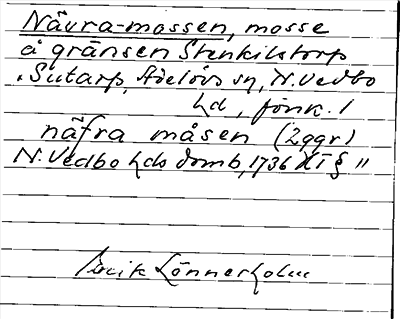 Nävra-mossen, mosse
å gränsen Stenkilstorp
Sutarp, Adelövs sn, N. Vedbo
hd, Jönk. l
näfra måsen (2 ggr)
N. Vedbo hds domb, 1736 HT § 11
Erik Lönnerholm